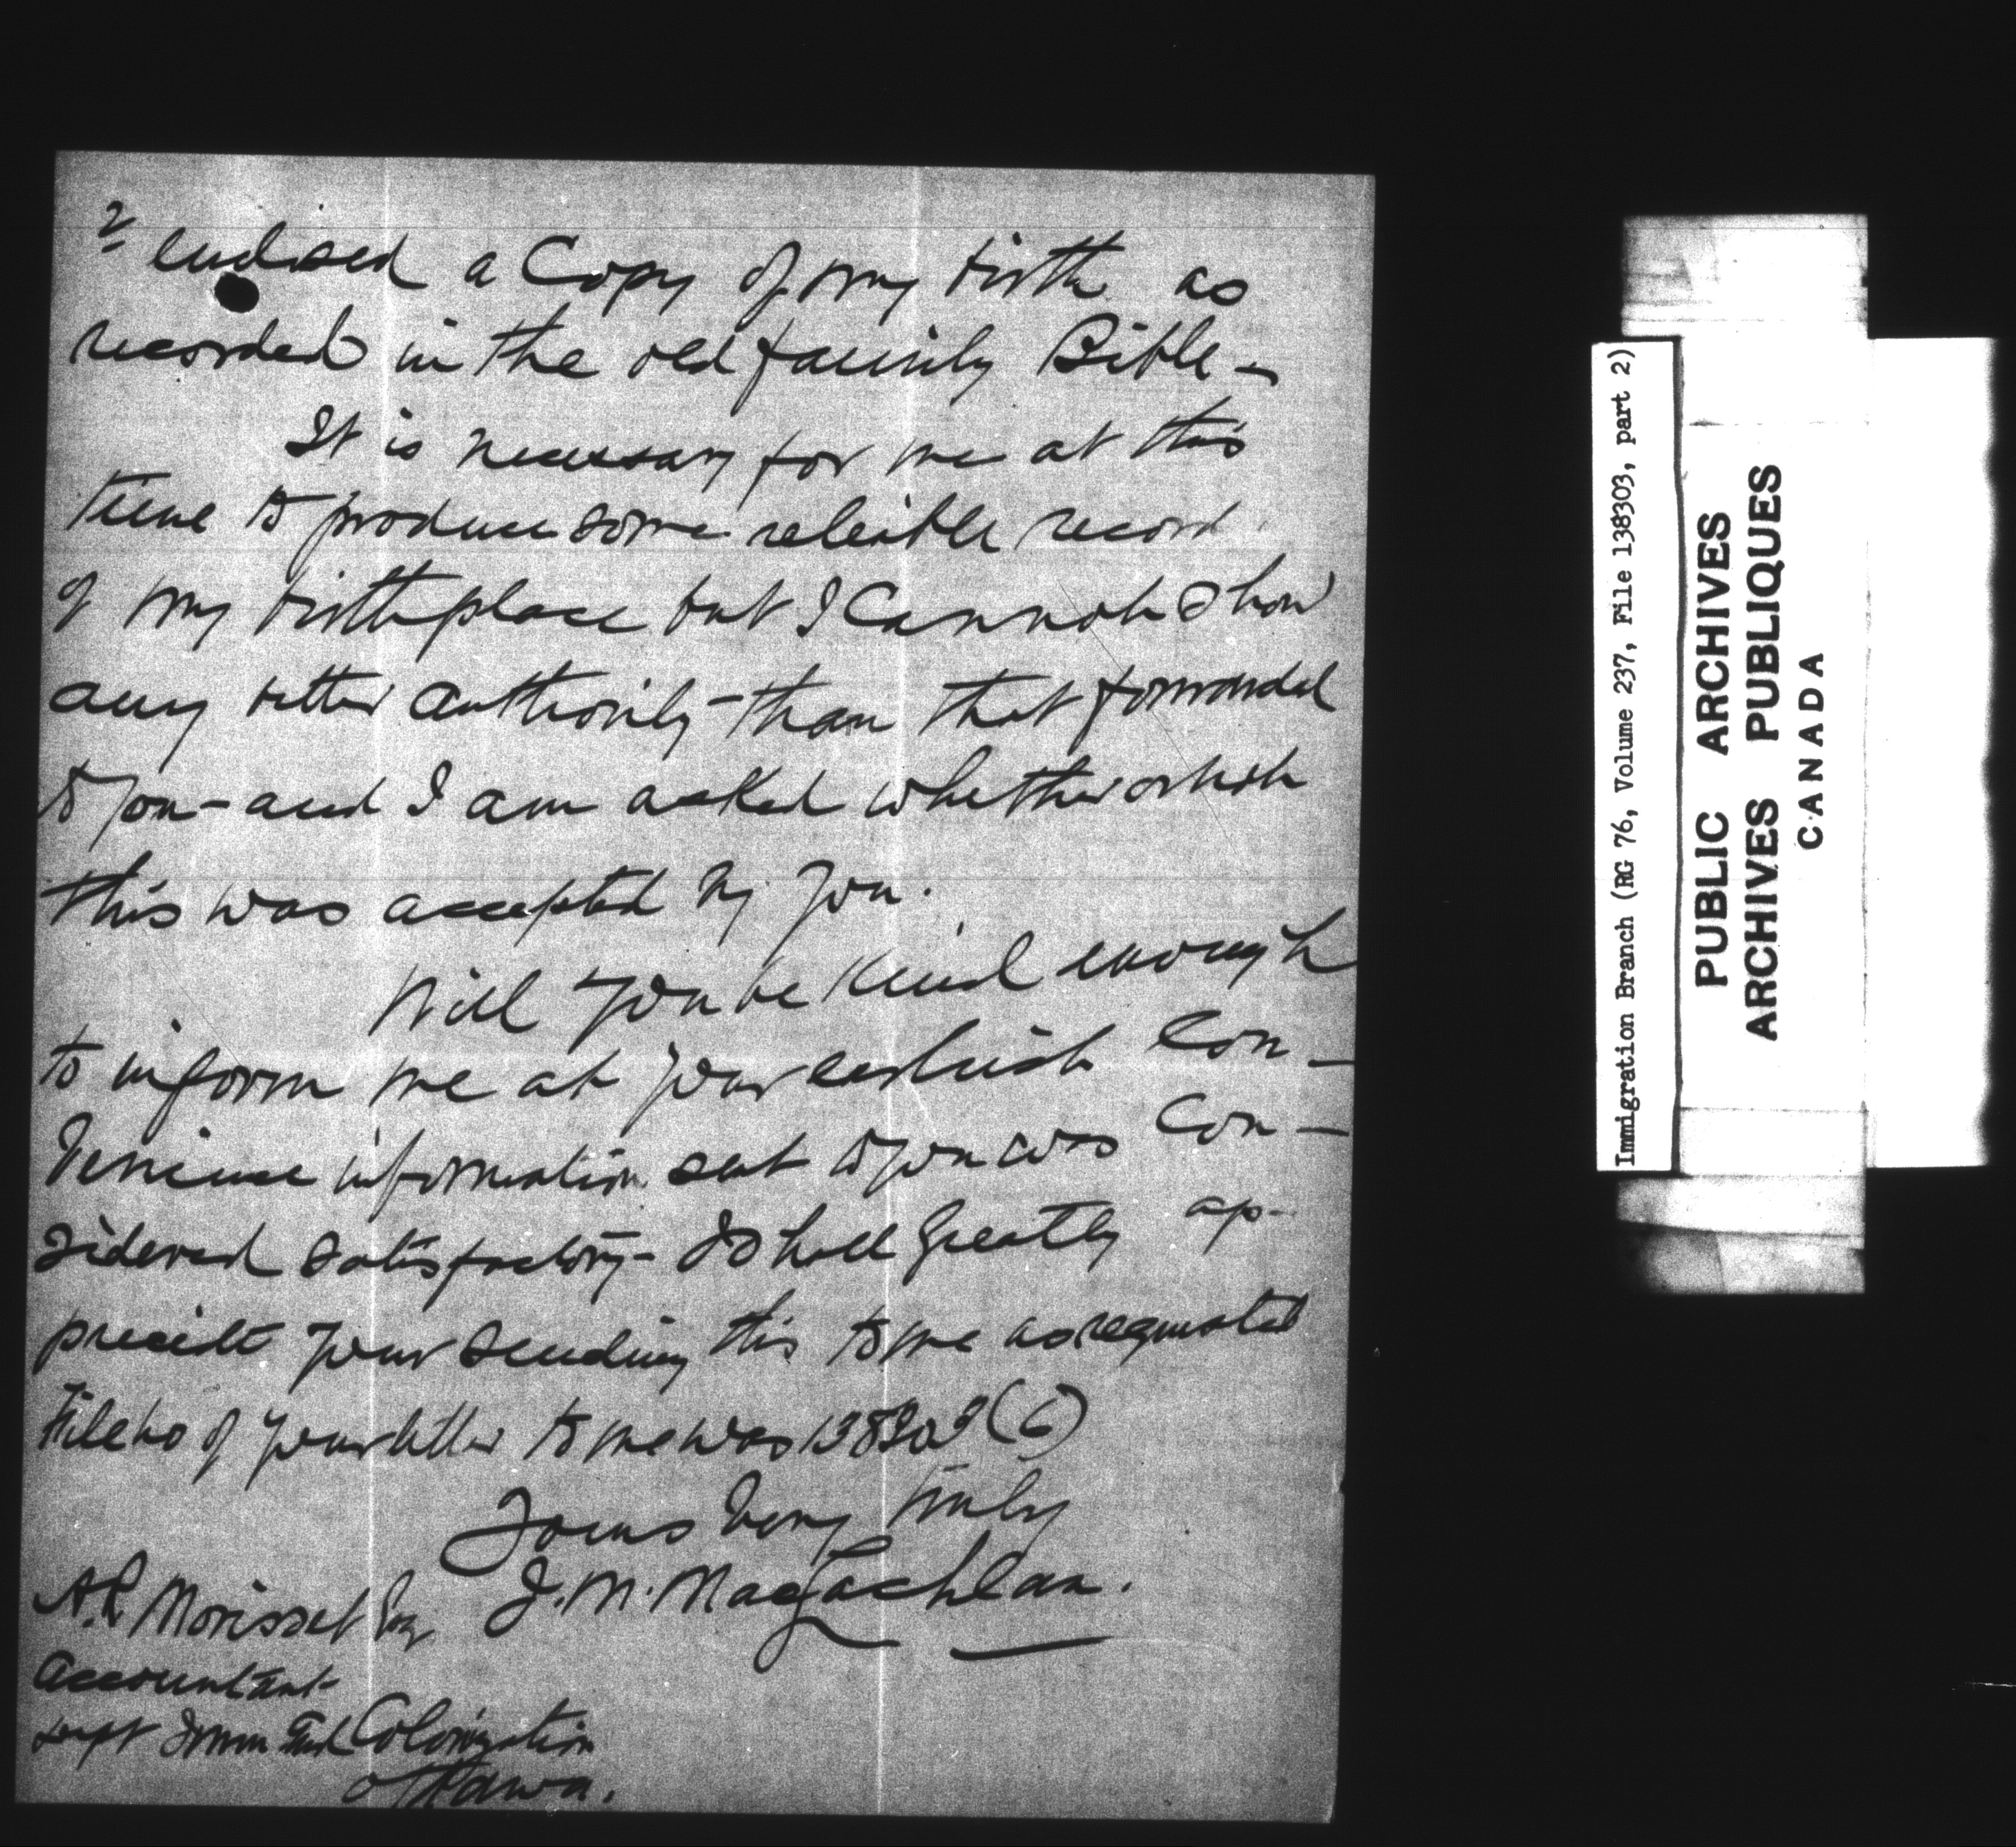 2
enclosed a Copy of my birth as
recorded in the old family Bible -
It is necessary for me at this
time to produce some releible record
of my birthplace but I Cannot Show
any better authority than that forwarded
to you - and I am asked whether or not
this was accepted by you.
Will you be kind enough
to inform me at your earliest Con-
venience information sent to you was Con-
sidered satisfactory - I Shall greatly ap-
preciate your sending this to me as requested
File no of your letter to me was 138303 (6)
Yours Very truly
J. M. MacLachlan.
A.R. Morisset Esq
Accountant
Dept Imm and Colonization
Ottawa.
Immigration Branch (RG 76, Volume 237, File 138303, part 2)
PUBLIC ARCHIVES
ARCHIVES PUBLIQUES
CANADA